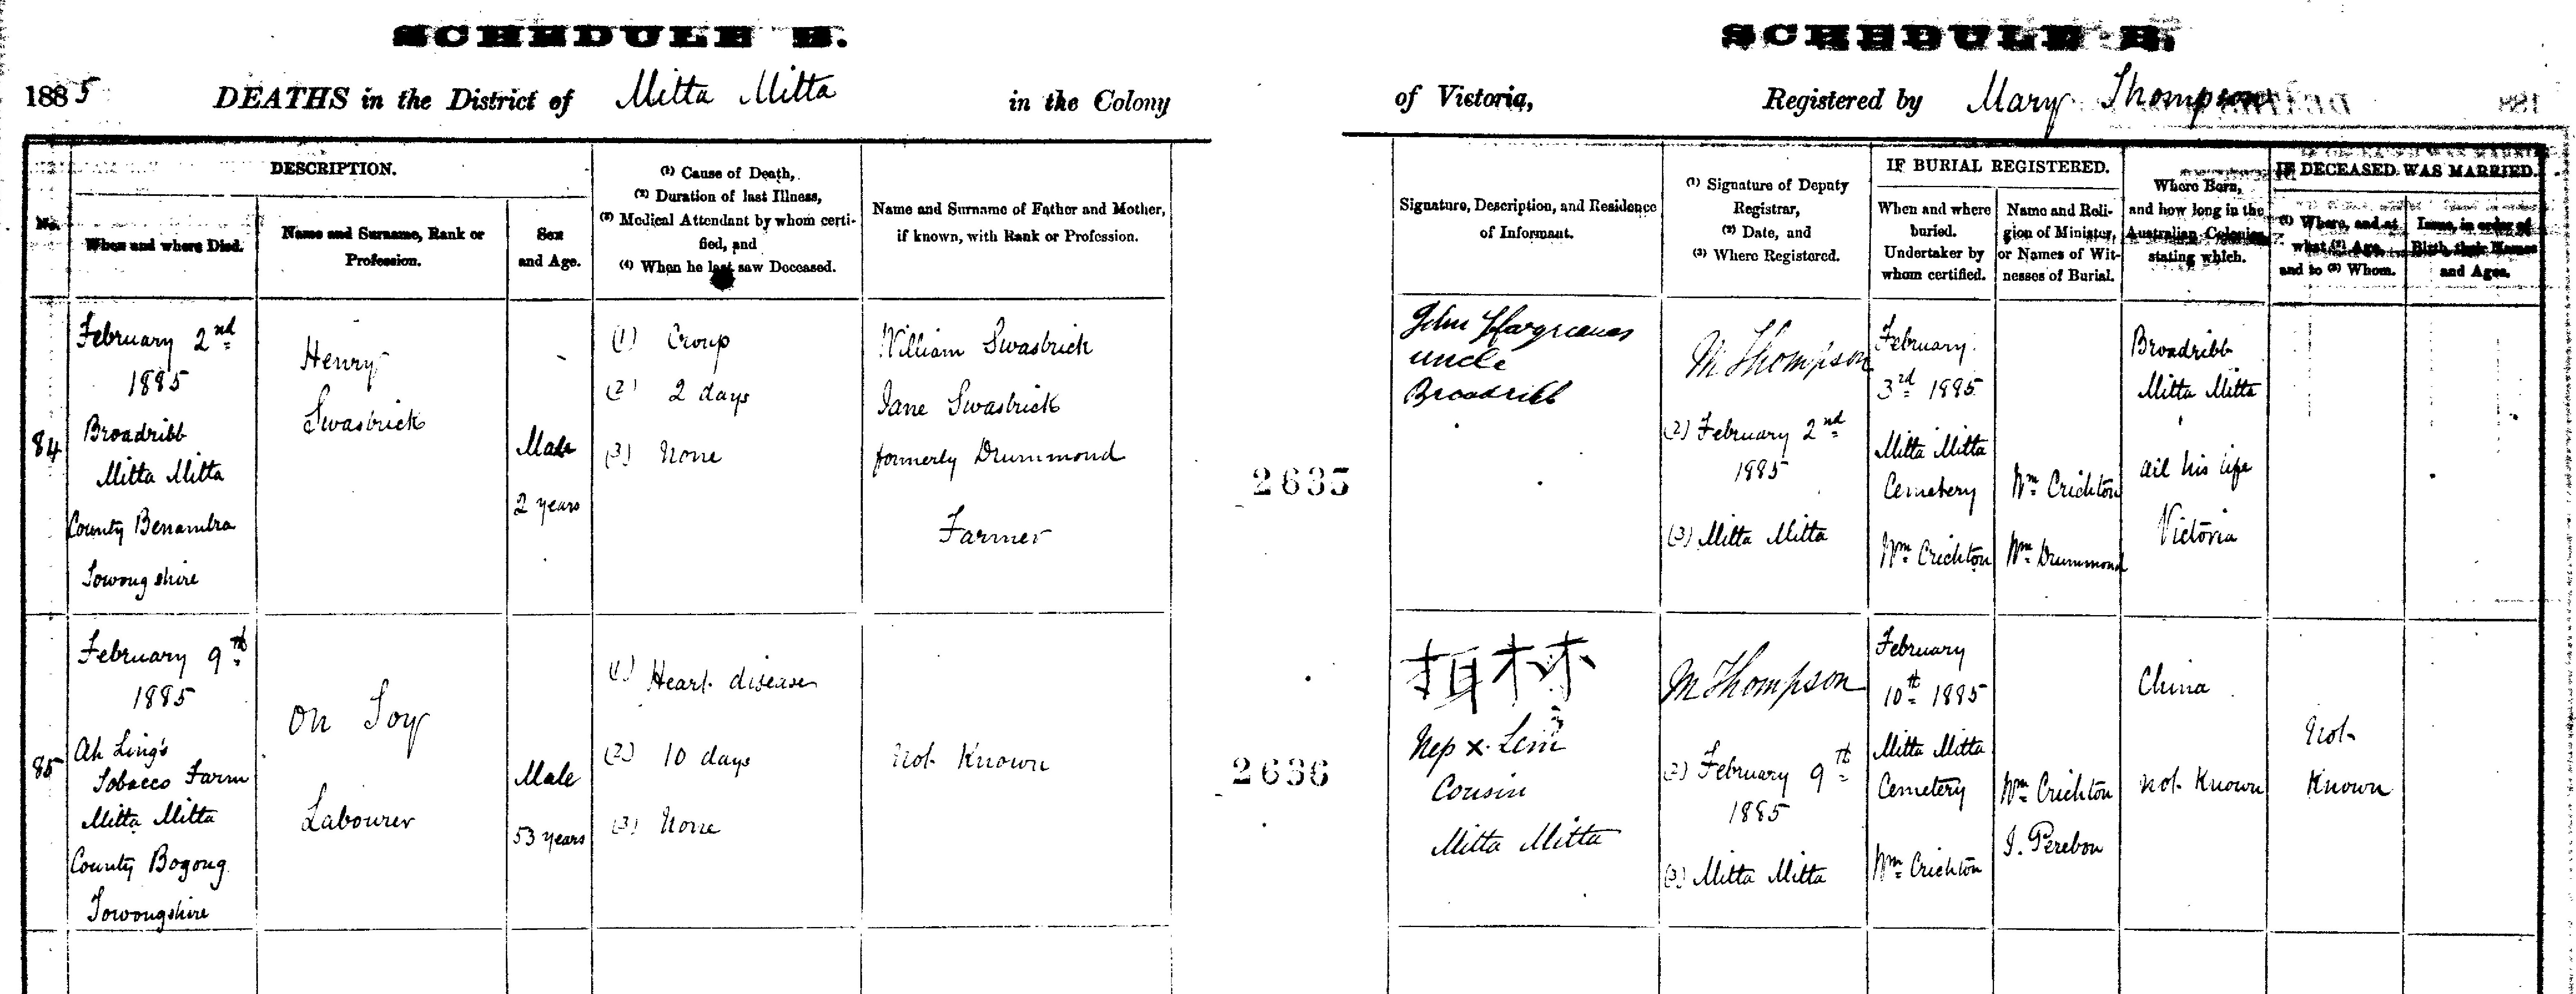 SCHEDULE B.
SCHEDULE B.
1885 DEATHS in the District of Mitta Mitta in the Colony
of Victoria, Registered by Mary Thompson
No.
DESCRIPTION.
When and where Died.
Name and Surname, Rank or
Profession.
Sex
and Age.
(1) Cause of Death,
(2) Duration of last Illness,
(3) Medical Attendant by whom certi-
fied, and
(4) When he last saw Deceased.
Name and Surname of Father and Mother,
if known, with Rank or Profession.
Signature, Description, and Residence
of Informant.
(1) Signature of Deputy
Registrar,
(2) Date, and
(3) Where Registered.
IF BURIAL REGISTERED.
When and where
buried.
Undertaker by
whom certified.
Name and Reli-
gion of Minister,
or Names of Wit-
nesses of Burial.
Where Born,
and how long in the
Australian Colonies,
stating which.
IF DECEASED WAS MARRIED.
(1) Where, and at
what (2) Age,
and to (3) Whom.
Issue, in order of
Birth, their Names
and Ages.
84
February 2nd
1885
Broadribb
Mitta Mitta
County Benambra
Towong shire
Henry
Swasbrick
Male
2 years
(1) Croup
(2) 2 days
(3) None
William Swasbrick
Jane Swasbrick
formerly Drummond
Farmer
2635
John Hargreaves
uncle
Broadribb
M Thompson
(2) February 2nd
1885
(3) Mitta Mitta
February
3rd 1885
Mitta Mitta
Cemetery
Wm Crichton
Wm Crichton
Wm Drummond
Broadribb
Mitta Mitta
all his life
Victoria
85
February 9th
1885
Ah Ling's
Tobacco Farm
Mitta Mitta
County Bogong
Towong shire
On Toy
Labourer
Male
53 years
(1) Heart disease
(2) 10 days
(3) None
Not Known
2636
Nep x Lem
Cousin
Mitta Mitta
M Thompson
(2) February 9th
1885
(3) Mitta Mitta
February
10th 1885
Mitta Mitta
Cemetery
Wm Crichton
Wm Crichton
J. Perebou
China
not Known
Not
Known